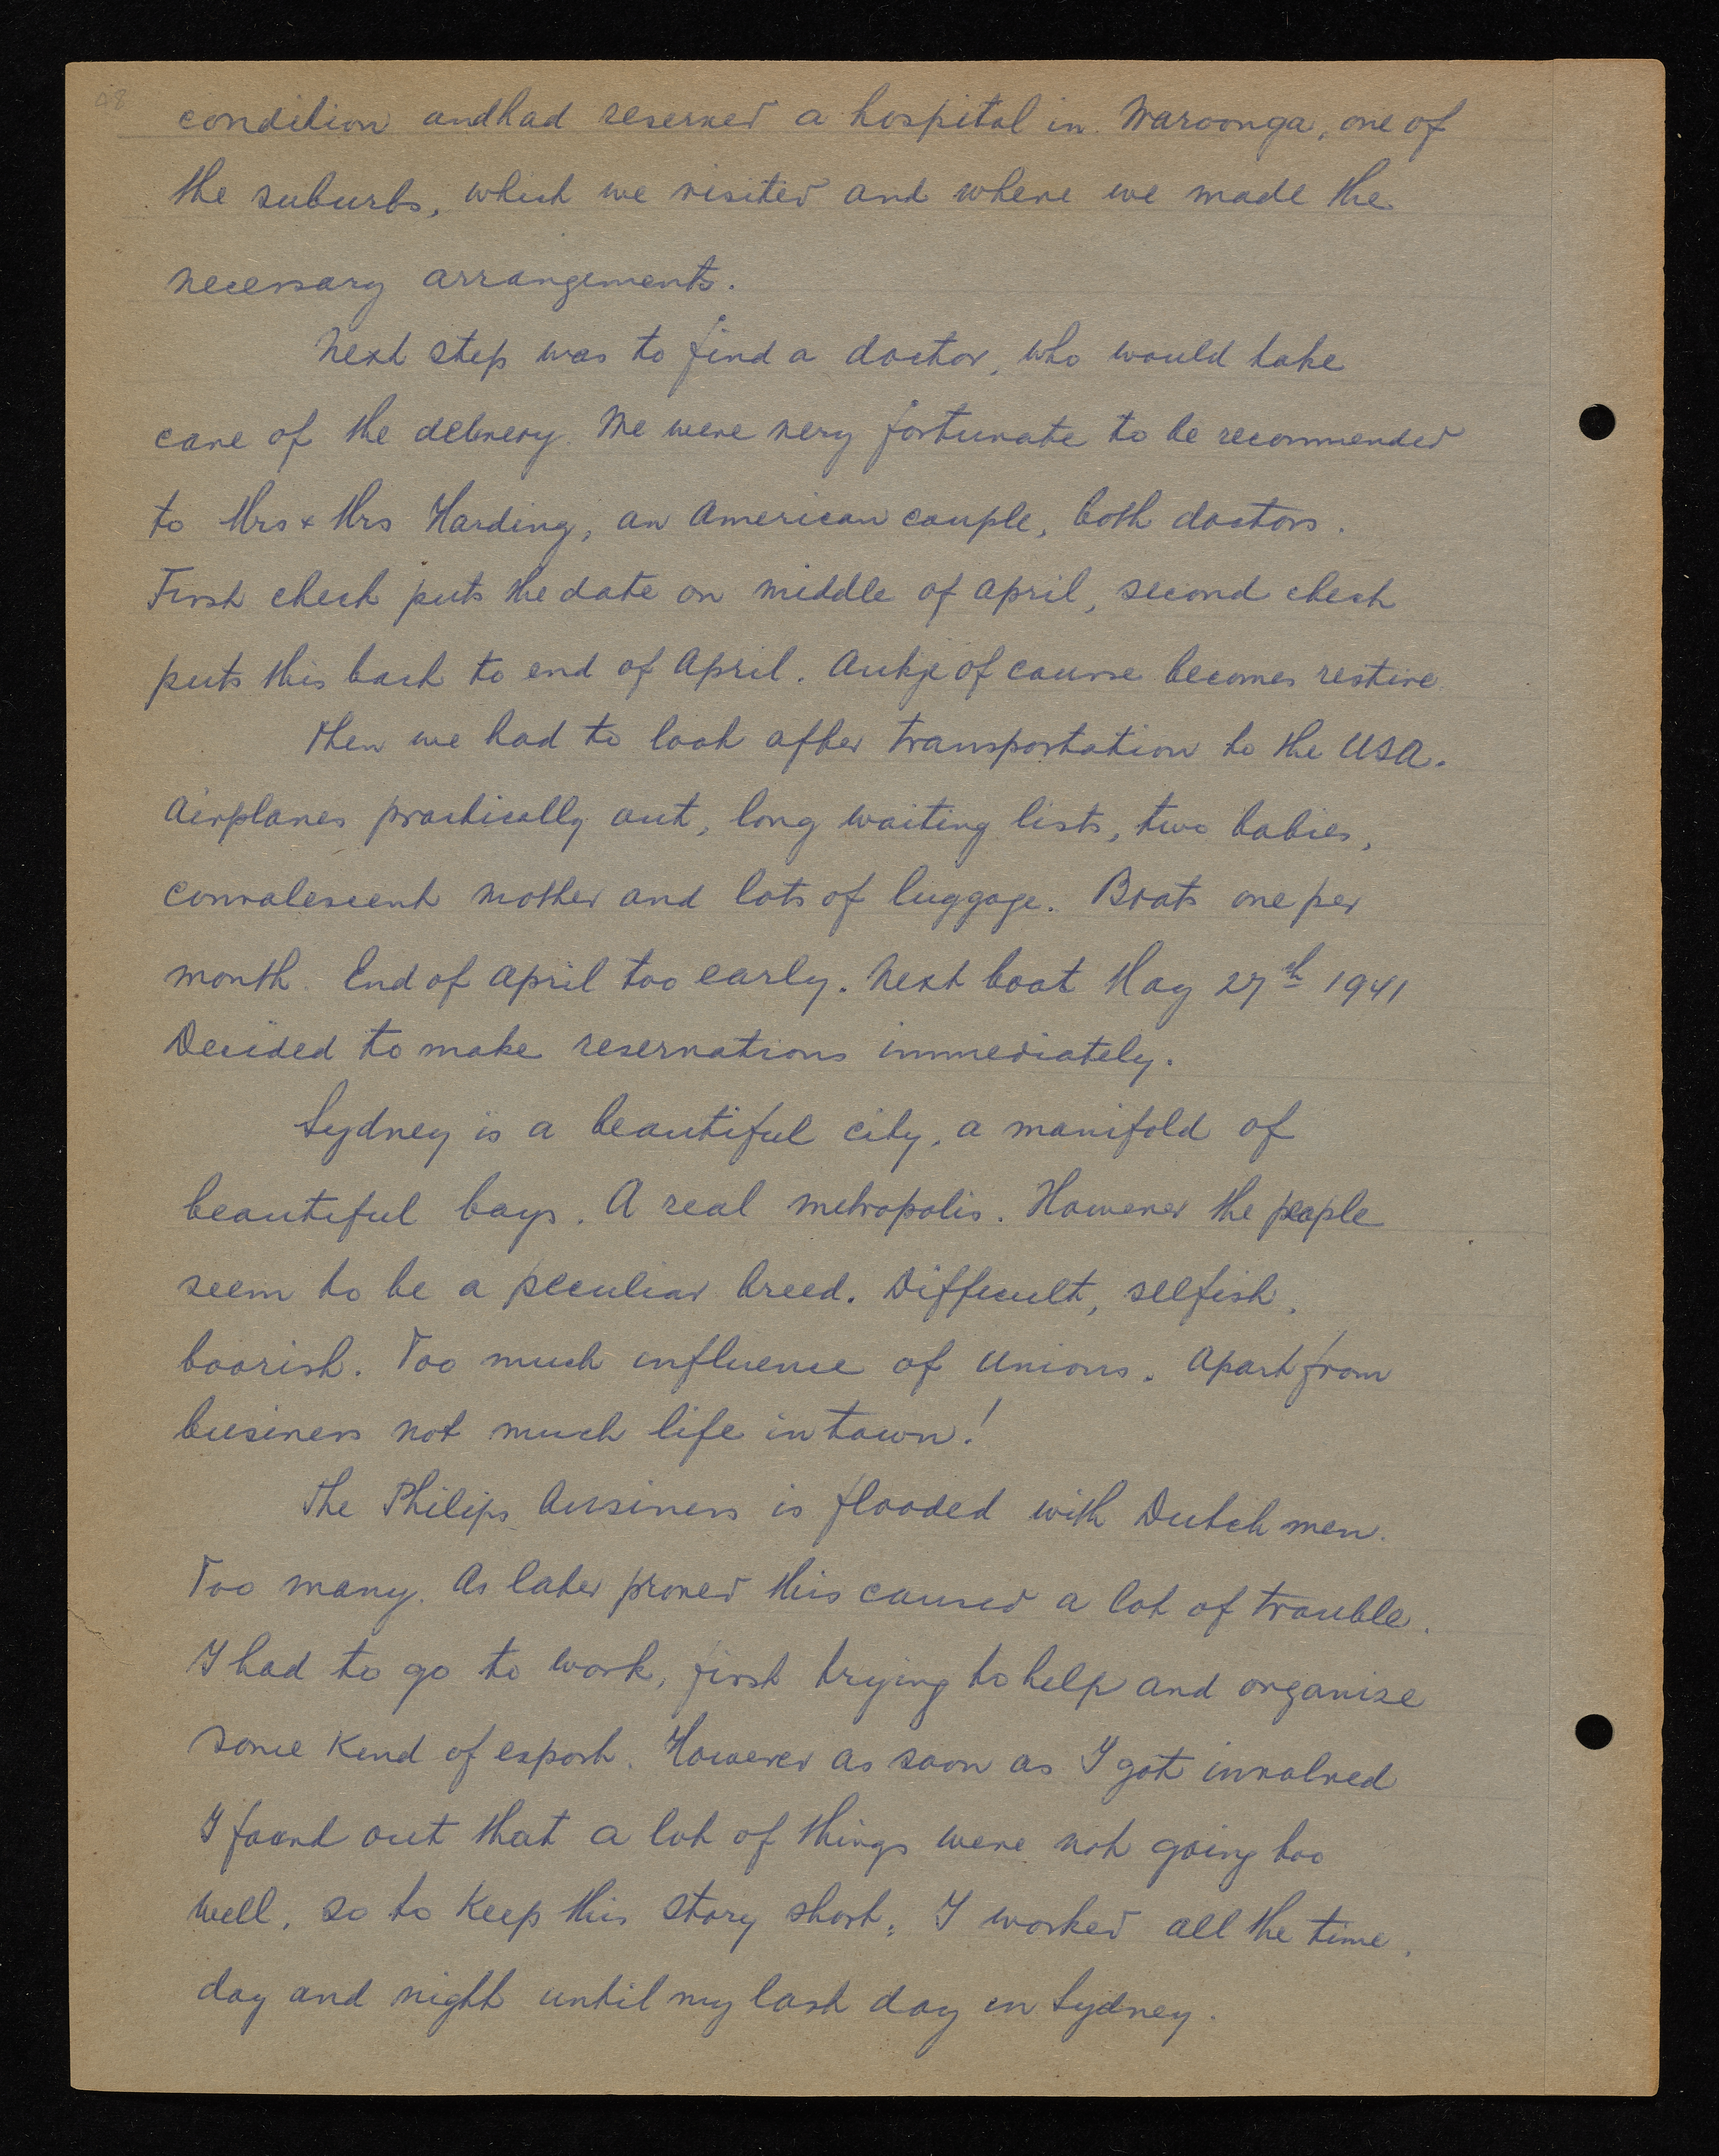 28
condition and had reserved a hospital in Waroonga, one of
the suburbs, which we visited and where we made the
necessary arrangements.
Next step was to find a doctor, who would take
care of the delivery. We were very fortunate to be recommended
to Mrs & Mrs Harding, an American couple, both doctors.
First check puts the date on middle of april, second check
puts this back to end of April. Aukje of course becomes restive
Then we had to look after transportation to the USA.
Airplanes practically out, long waiting lists, two babies,
convalescent mother and lots of luggage. Boats one per
month. End of april too early. Next boat May 27th 1941
Decided to make reservations immediately.
Sydney is a beautiful city, a manifold of
beautiful bays. A real metropolis. However the people
seem to be a peculiar breed. Difficult, selfish,
boorish. Too much influence of Unions. Apart from
business not much life in town!
The Philips business is flooded with Dutch men.
Too many. As later proved this caused a lot of trouble.
I had to go to work, first trying to help and organize
some kind of export. However as soon as I got involved
I found out that a lot of things were not going too
well, so to keep this story short, I worked all the time,
day and night until my last day in Sydney.